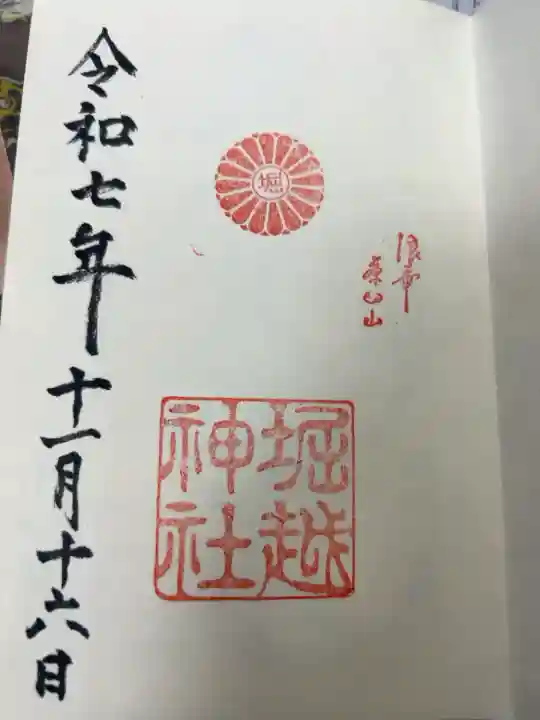 浪華
茶臼山
堀
堀越
神社
令和七年十一月十六日